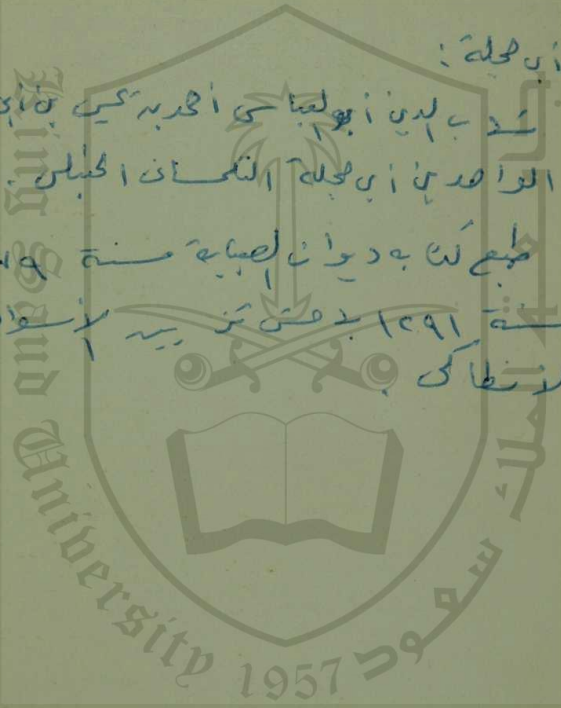 أبي حجلة :
شهاب الدين أبو العباس أحمد بن يحيى بن أبي
الواحد بن أبي حجلة التلمساني الحنبلي .
طبع كتابه ديوان الصبابة سنة
سنة ١٢٩١ بهامش تزيين الأسواق
لانطاكي .
King Saud University 1957
جامعة الملك سعود